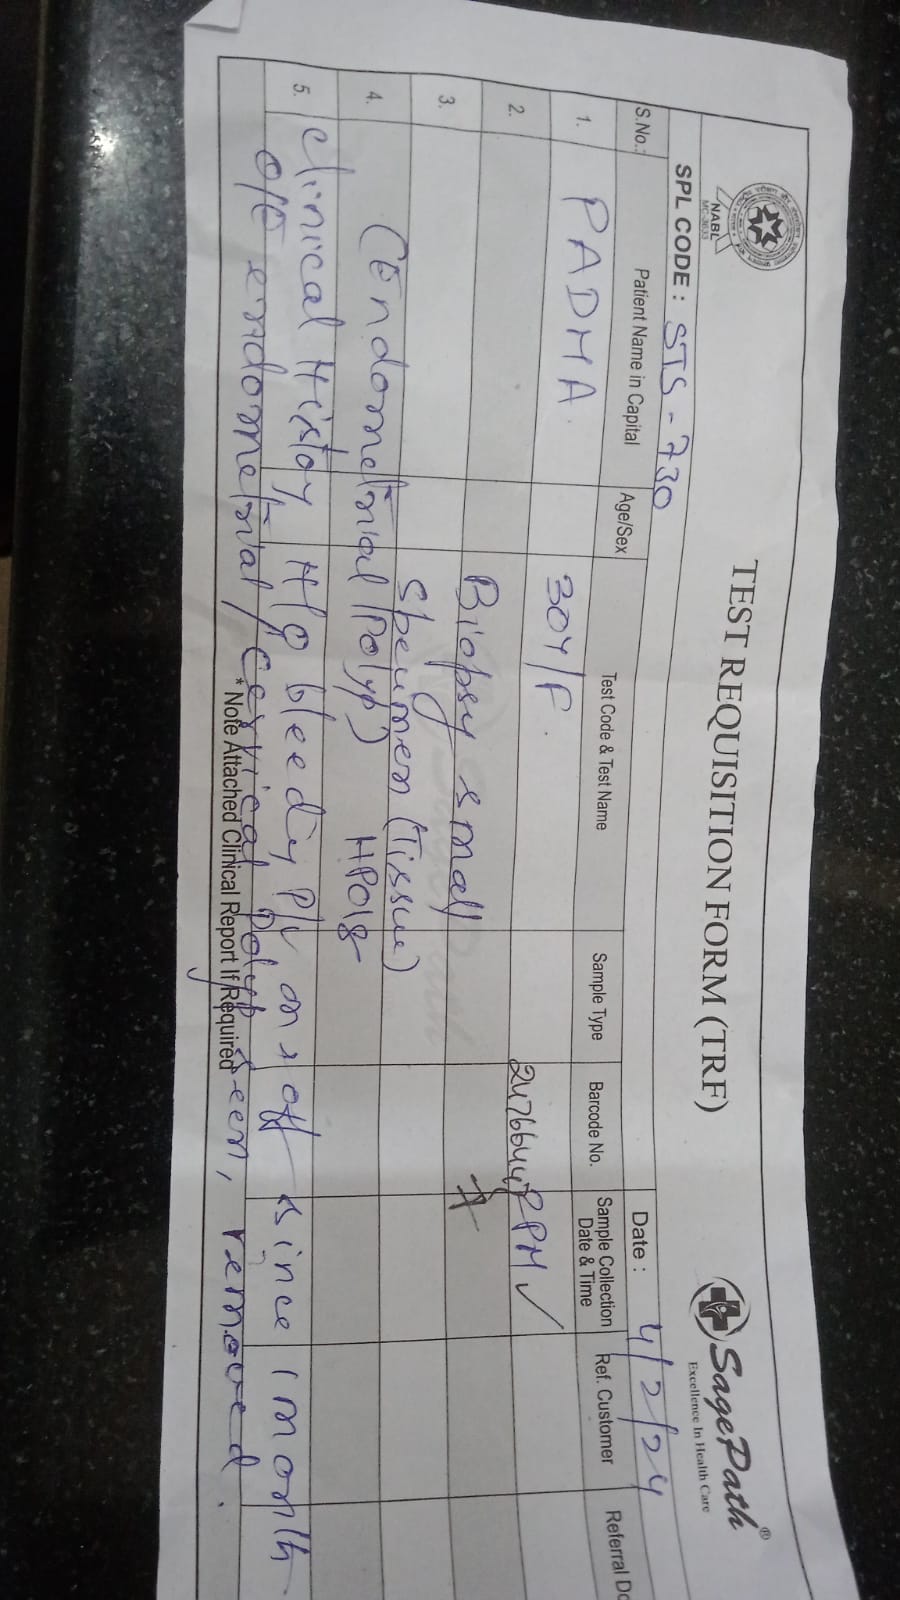 TEST REQUISITION FORM (TRF)
NABL
MC-3633
SagePath®
Excellence In Health Care
SPL CODE : STS-730
Date : 4/2/24
S.No.: Patient Name in Capital Age/Sex Test Code & Test Name Sample Type Barcode No. Sample Collection Date & Time Ref. Customer Referral Do
1. PADMA 30Y/F.
2. Biopsy small 2PM
3. specimen (Tissue)
4. (Endometrial Polyp) HP018
5. Clinical History H/o bleeding P/v on & off since 1 month
O/E endometrial / Cervical Polyp seen, removed.
* Note Attached Clinical Report If Required